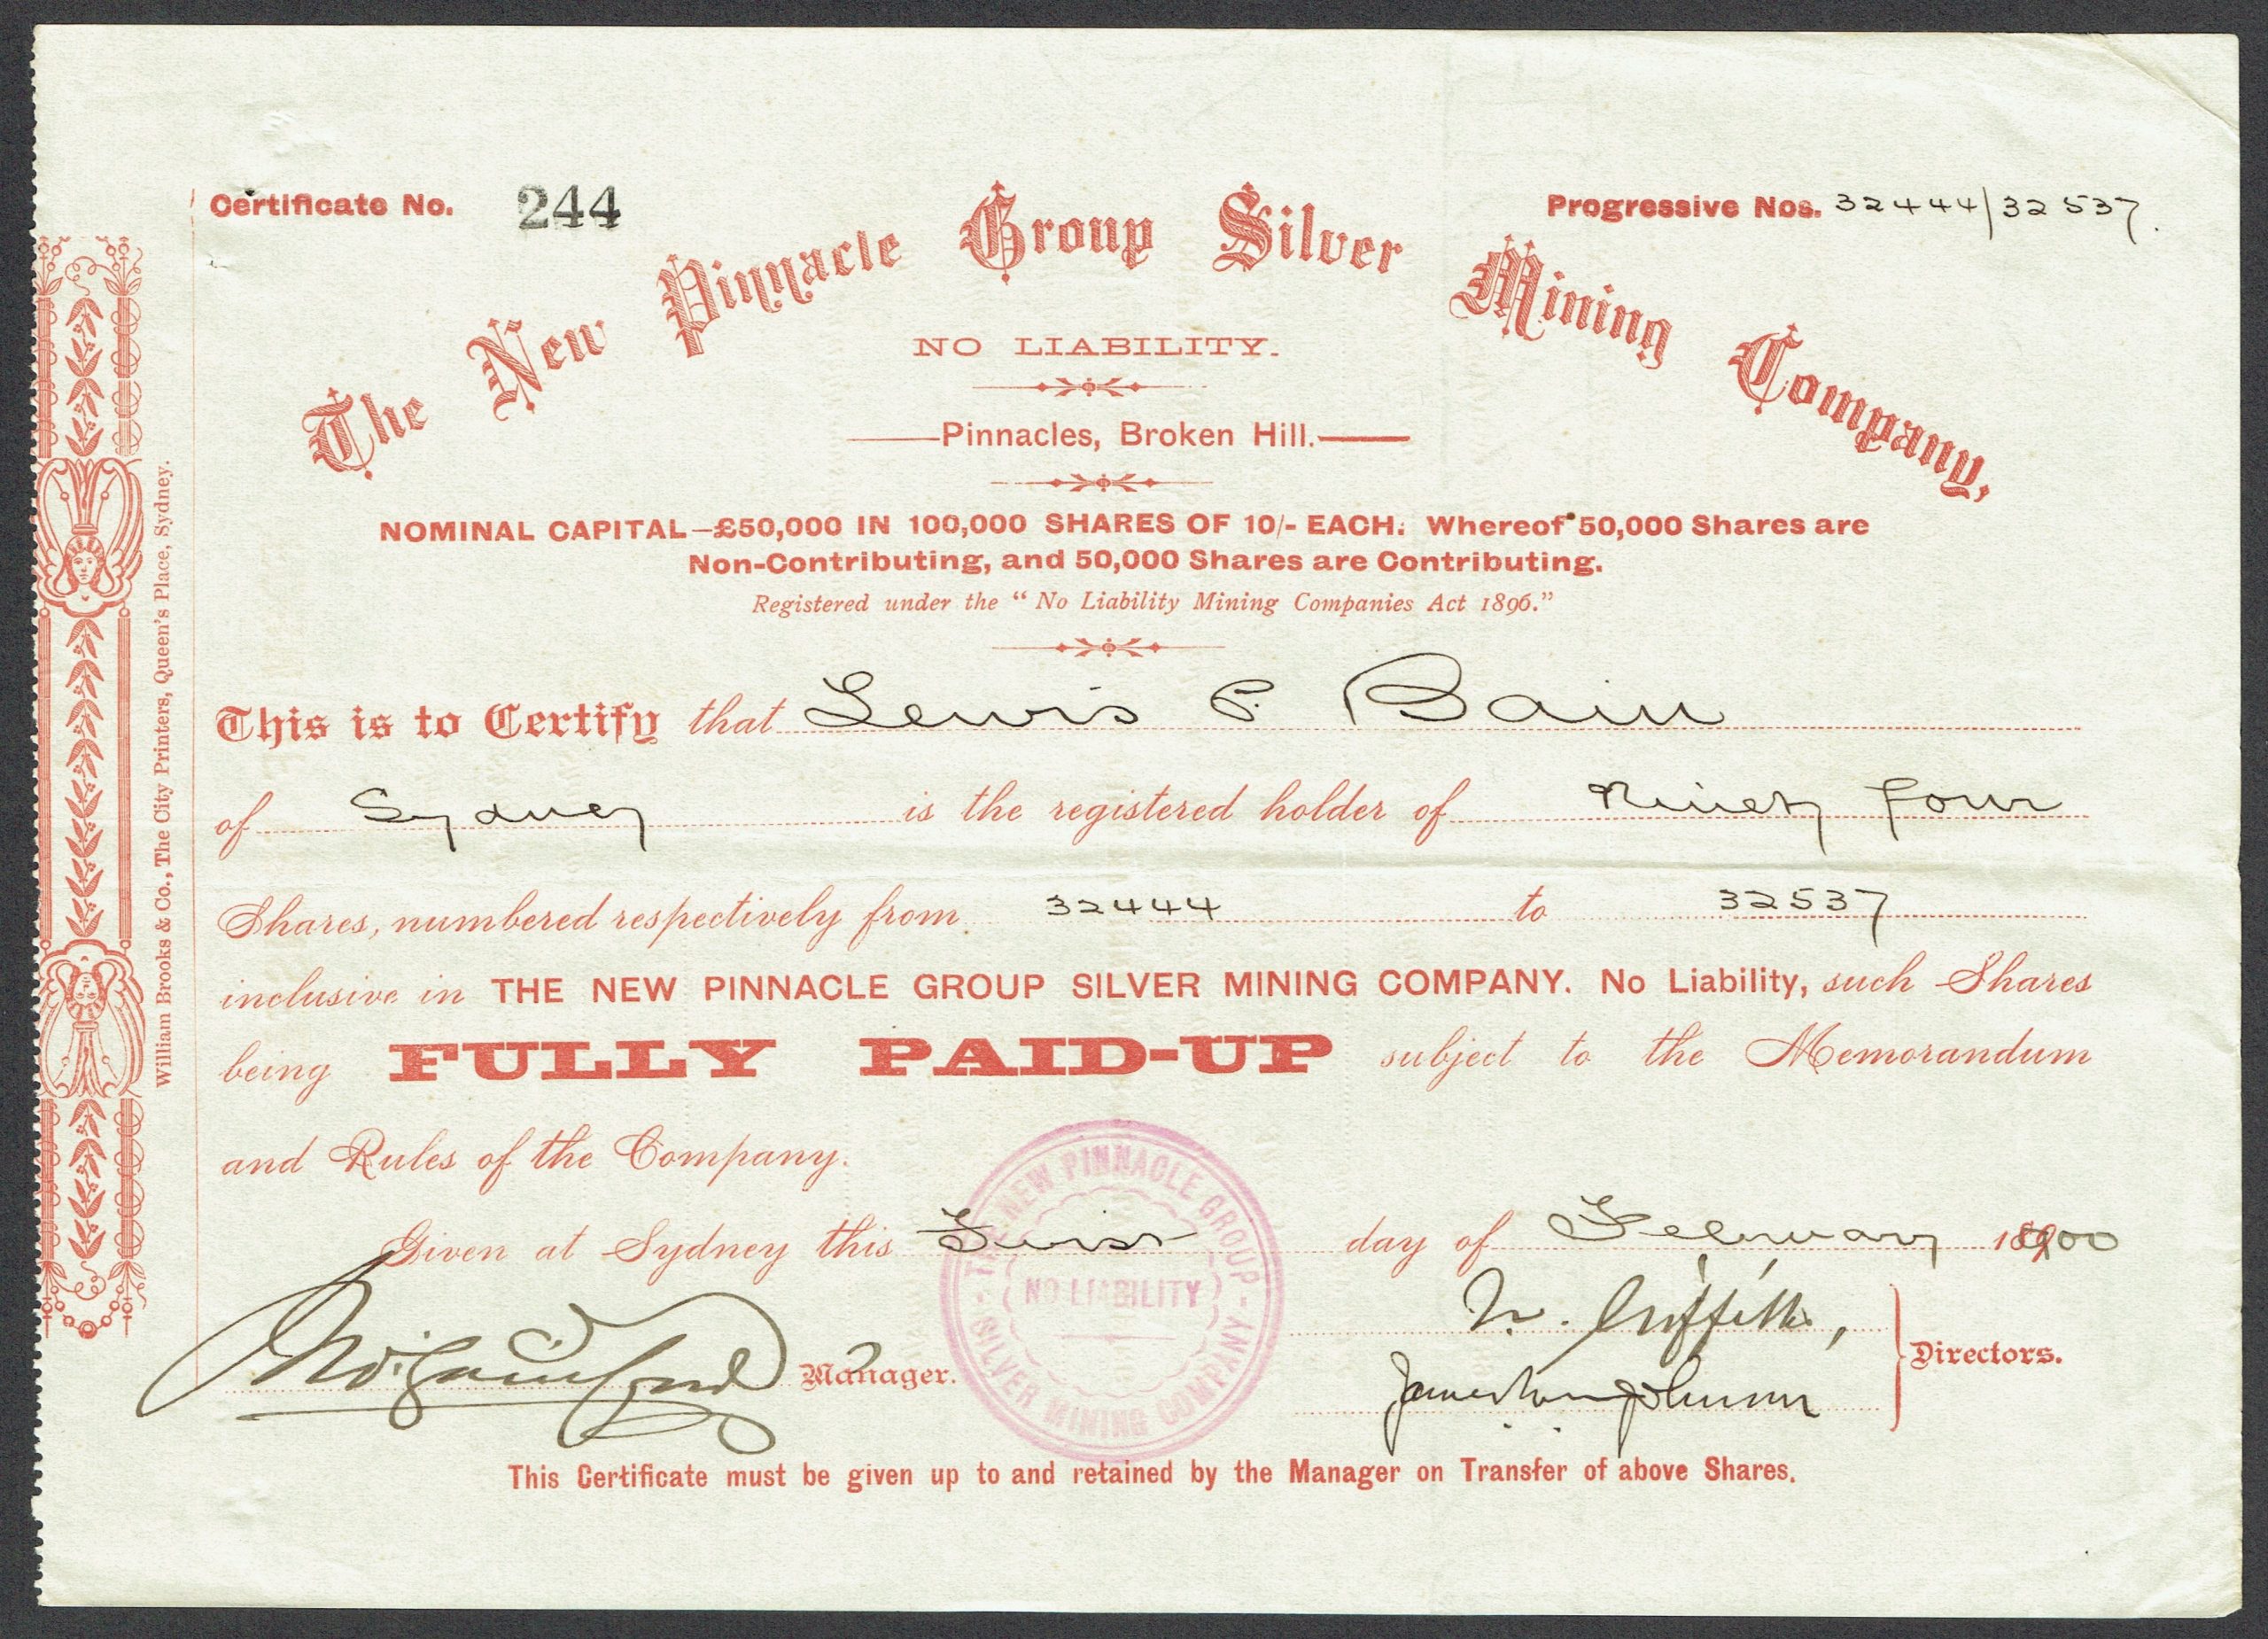 Certificate No. 244
Progressive Nos. 32444/32537.
The New Pinnacle Group Silver Mining Company,
NO LIABILITY.
Pinnacles, Broken Hill.
NOMINAL CAPITAL—£50,000 IN 100,000 SHARES OF 10/- EACH. Whereof 50,000 Shares are
Non-Contributing, and 50,000 Shares are Contributing.
Registered under the "No Liability Mining Companies Act 1896."
This is to Certify that Lewis P. Bain
of Sydney is the registered holder of Ninety four
Shares, numbered respectively from 32444 to 32537
inclusive in THE NEW PINNACLE GROUP SILVER MINING COMPANY. No Liability, such Shares
being FULLY PAID-UP subject to the Memorandum
and Rules of the Company.
Given at Sydney this First day of February 1900
W. Griffiths,
Manager.
Directors.
THE NEW PINNACLE GROUP
NO LIABILITY
SILVER MINING COMPANY
This Certificate must be given up to and retained by the Manager on Transfer of above Shares.
William Brooks & Co., The City Printers, Queen's Place, Sydney.